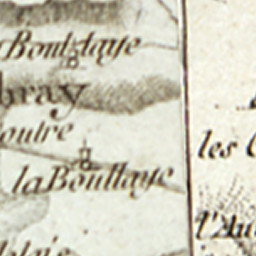 Boutlaye
bray
outre
la Bouttaye
les
l'Au